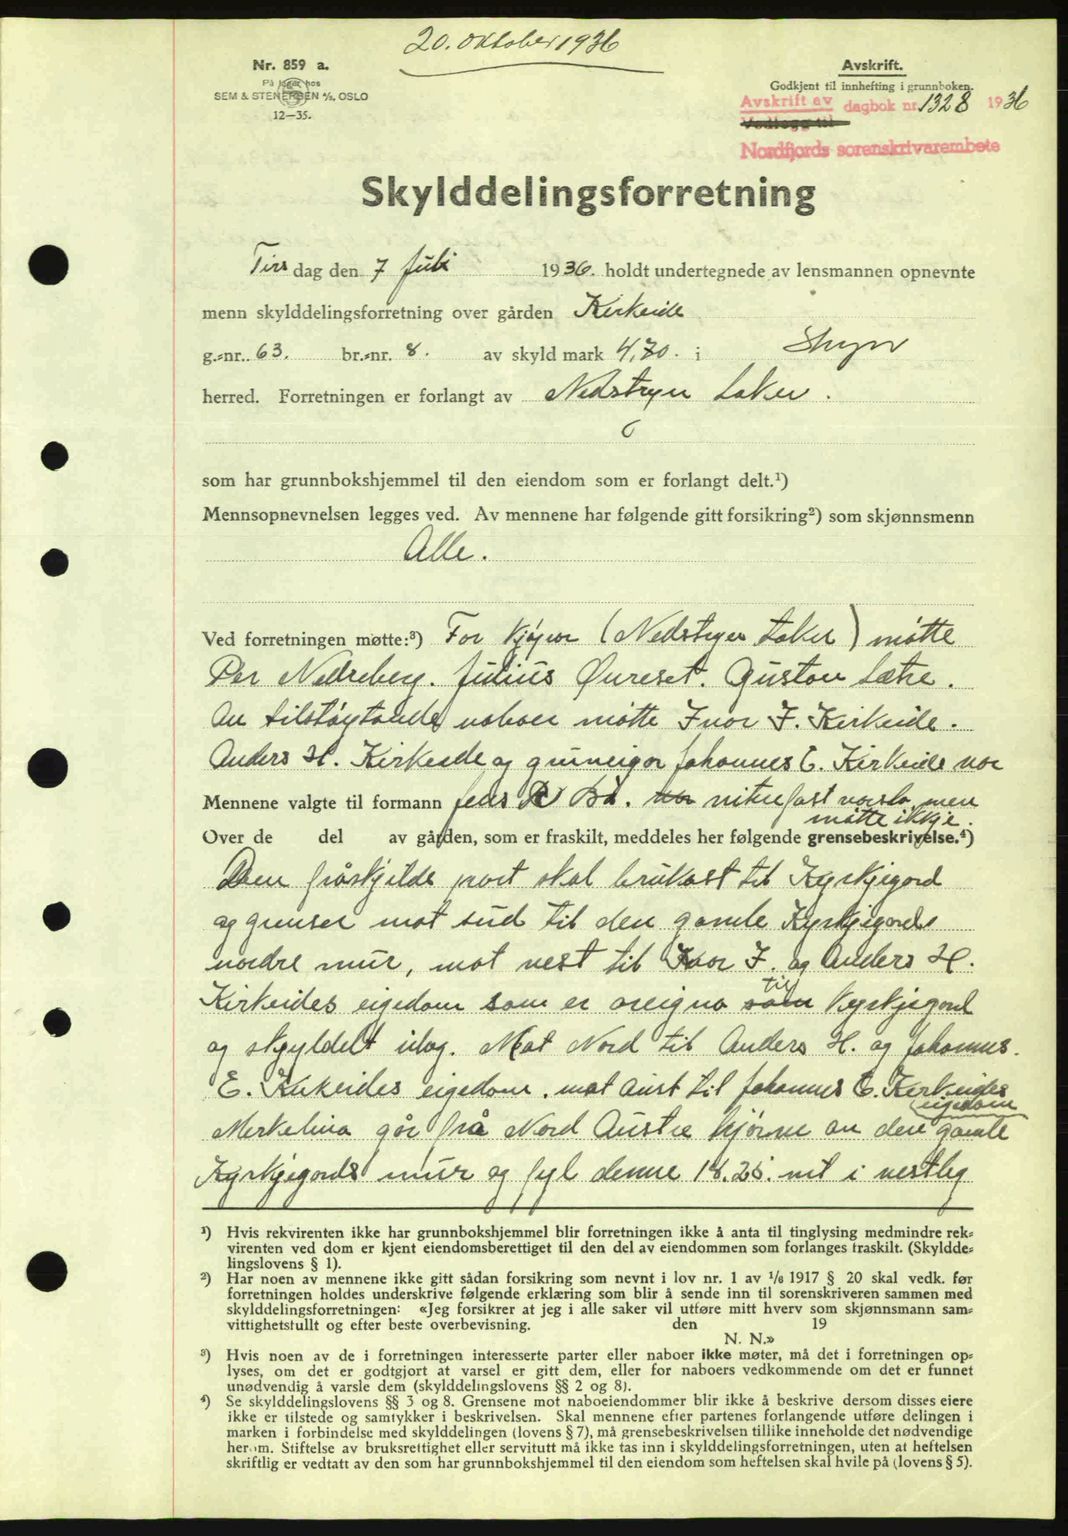 20. oktober 1936
Nr. 859 a.
På lager hos
SEM & STENERSEN A/S, OSLO
12—35.
Avskrift.
Godkjent til innhefting i grunnboken.
Avskrift av dagbok nr. 1328 1936
Vedlegg til
Nordfjords sorenskrivarembete
Skylddelingsforretning
Tirsdag den 7 Juli 1936. holdt undertegnede av lensmannen opnevnte
menn skylddelingsforretning over gården Kirkeide
g.-nr. 63. br.-nr. 8. av skyld mark 4,70. i Stryn
herred. Forretningen er forlangt av Nedstryn sokn.
som har grunnbokshjemmel til den eiendom som er forlangt delt.¹)
Mennsopnevnelsen legges ved. Av mennene har følgende gitt forsikring²) som skjønnsmenn
Alle.
Ved forretningen møtte:³) For kjøpar (Nedstryn sokn) møtte
Per Nedreberg. Julius Øvreset. Gustav Sætre.
Av tilstøytande naboer møtte Ivar J. Kirkeide.
Anders H. Kirkeide og grunneigar Johannes E. Kirkeide var
Mennene valgte til formann Jens R Bø. var vitufast varsla, men
møtte ikkje.
Over de del av gården, som er fraskilt, meddeles her følgende grensebeskrivelse.⁴)
Den fråskjilde part skal brukast til Kyrkjegard
og grenser mot sud til den gamle Kyrkjegards
nordre mur, mot vest til Ivar J. og Anders H.
Kirkeides eigedom som er oreigna som til Kyrkjegard
og skyldelt idag. Mot Nord til Anders H. og Johannes.
E. Kirkeides eigedom. mot Aust til Johannes E. Kirkeides
eigedom
Merkelina går frå Nord Austre hjørne av den gamle
Kyrkjegards mur og fyl denne 18.25. mt i vestleg
¹) Hvis rekvirenten ikke har grunnbokshjemmel blir forretningen ikke å anta til tinglysing medmindre rek-
virenten ved dom er kjent eiendomsberettiget til den del av eiendommen som forlanges fraskilt. (Skyldde-
lingslovens § 1).
²) Har noen av mennene ikke gitt sådan forsikring som nevnt i lov nr. 1 av 1/6 1917 § 20 skal vedk. før
forretningen holdes underskrive følgende erklæring som blir å sende inn til sorenskriveren sammen med
skylddelingsforretningen: «Jeg forsikrer at jeg i alle saker vil utføre mitt hverv som skjønnsmann sam-
vittighetsfullt og efter beste overbevisning. den 19
N. N.»
³) Hvis noen av de i forretningen interesserte parter eller naboer ikke møter, må det i forretningen op-
lyses, om det er godtgjort at varsel er gitt dem, eller for naboers vedkommende om det er funnet
unødvendig å varsle dem (skylddelingslovens §§ 2 og 8).
⁴) Se skylddelingslovens §§ 3 og 8. Grensene mot naboeiendommer blir ikke å beskrive dersom disses eiere
ikke er tilstede og samtykker i beskrivelsen. Skal mennene efter partenes forlangende utføre delingen i
marken i forbindelse med skylddelingen (lovens § 7), må grensebeskrivelsen tillike inneholde det nødvendige
herom. Stiftelse av bruksrettighet eller servitutt må ikke tas inn i skylddelingsforretningen, uten at heftelsen
skriftlig er vedtatt av den som har grunnbokshjemmel til den eiendom som heftelsen skal hvile på (lovens § 5).